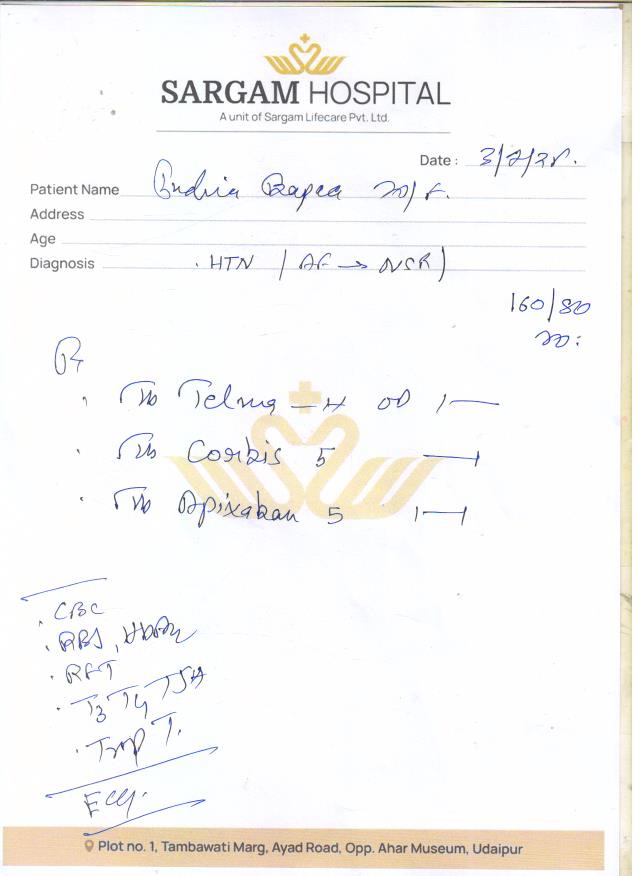 SARGAM HOSPITAL
A unit of Sargam Lifecare Pvt. Ltd.
Date : 3/2/25.
Patient Name 70/F.
Address
Age
Diagnosis . HTN / AF → NSR)
160/80
70:
Rx
. Tab Telma - H OD 1——
. Tab Corbis 5 ——|
. Tab Apixaban 5 1——|
. CBC
. RBS, HbA1c
. RFT
. T3 T4 TSH
. Trop T.
ECG.
Plot no. 1, Tambawati Marg, Ayad Road, Opp. Ahar Museum, Udaipur